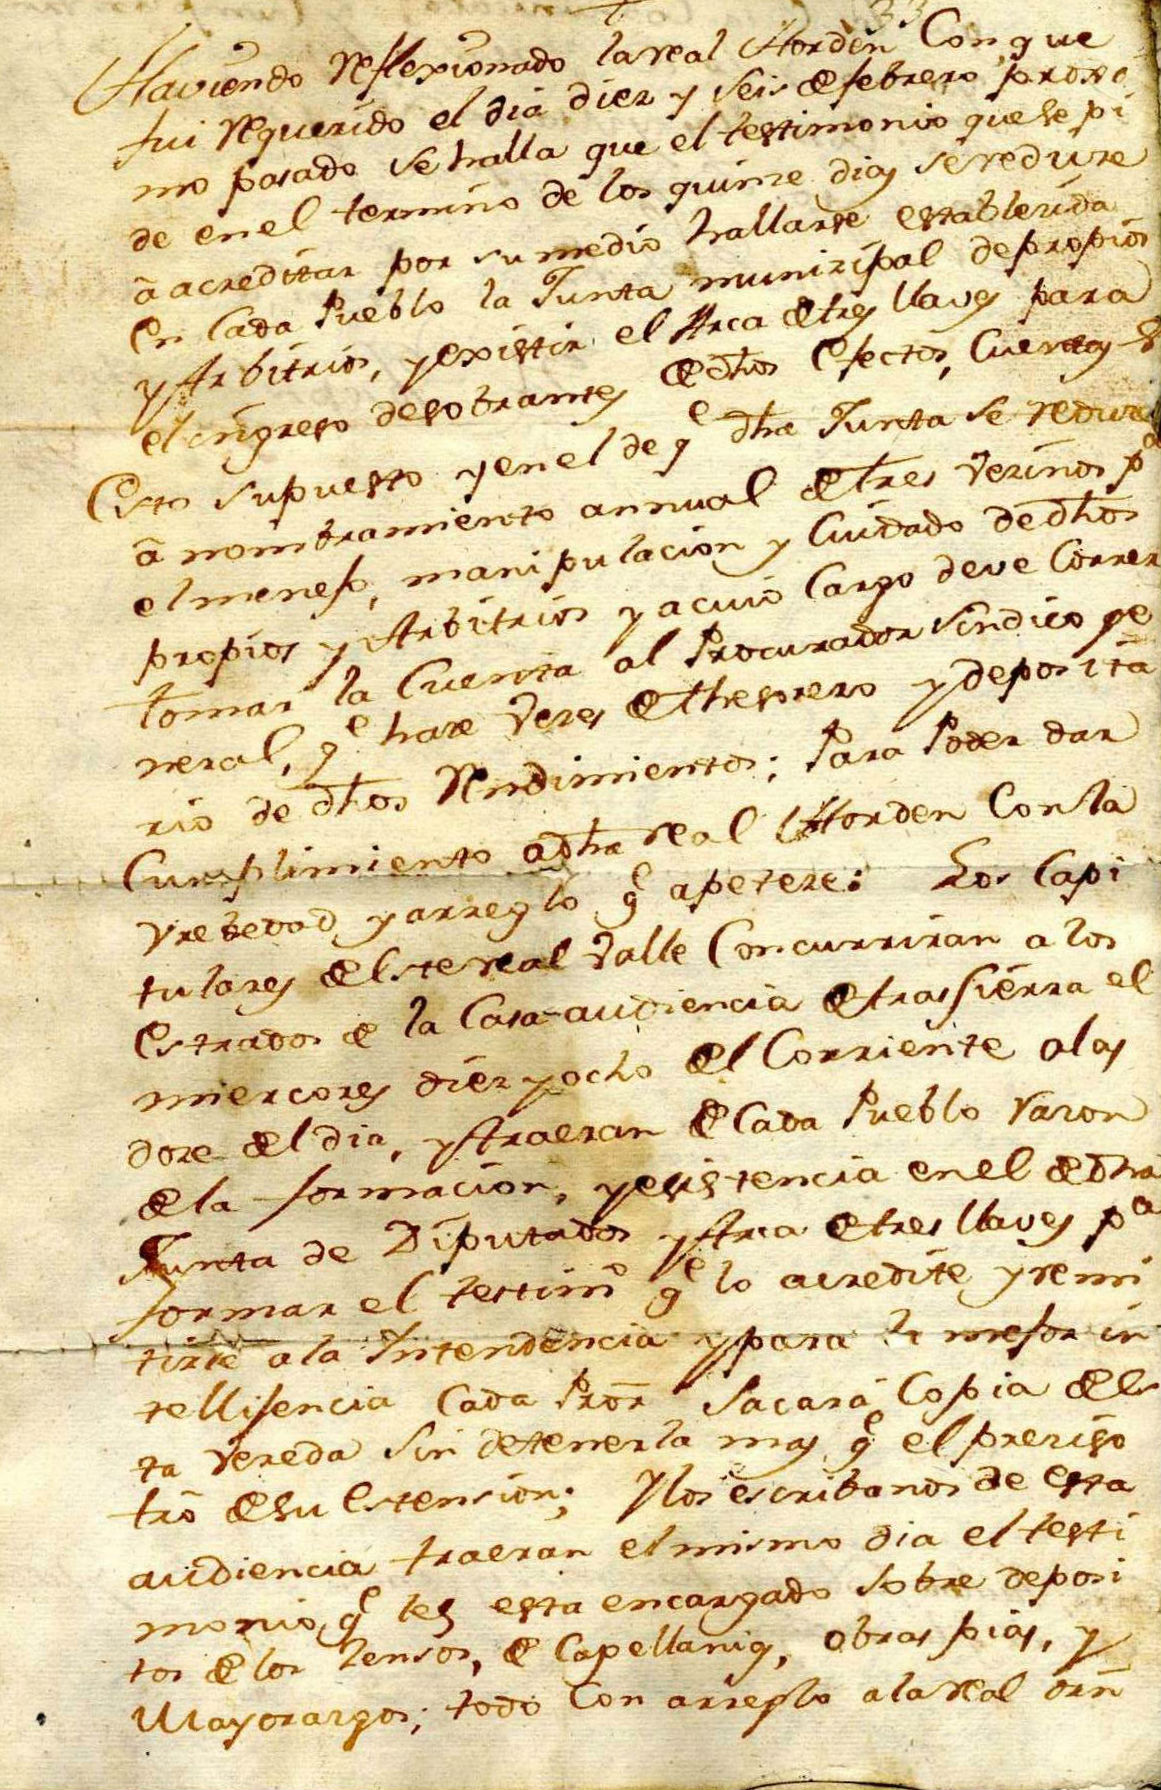 33
Haviendo reflexionado la real Horden Con que
fui requerido el dia diez y seis de febrero proxi
mo pasado se halla que el testimonio que se pi
de en el termino de los quinze dias se reduze
â acreditar por su medio hallarse establezida
En Cada Pueblo la Junta munizipal de propios
y Arbitrios, y existir el Arca de tres llaves para
el ingreso de sobrantes de dhos efectos, Cuentas &
Esto supuesto y en el de qe dha Junta se reduze
â nombramiento annual de tres vezinos pa
el menejo, manipulacion y Cuidado de dhos
propios y Arbitrios y a cuio Cargo deve Correr
tomar la Cuenta al Procurador sindico ge
neral, qe haze vezes de thesorero y deposita
rio de dhos Rendimientos; Para Poder dar
Cumplimiento a dha real Horden Con la
vrebedad y arreglo qe apeteze: Los Capi
tulares de este real valle Concurriran a los
Estrados de la Casa audiencia de tras sierra el
miercores diez y ocho del Corriente a las
doze del dia, y traeran de Cada Pueblo razon
de la formacion, y esistencia en el de dha
Junta de Diputados y Arca de tres llaves pa
formar el testimo qe lo acredite y remi
tirle a la Intendencia y para la mejor in
tellijencia Cada Pror sacará Copia de es
ta vereda sin detenerla mas qe el preziso
tro de su Estension; Y los escribanos de esta
audiencia traeran el mismo dia el testi
monio qe les esta encargado sobre deposi
tos de los zensos, de Capellanias, obras pias, y
Mayorazgos; todo Con arreglo a la real orn